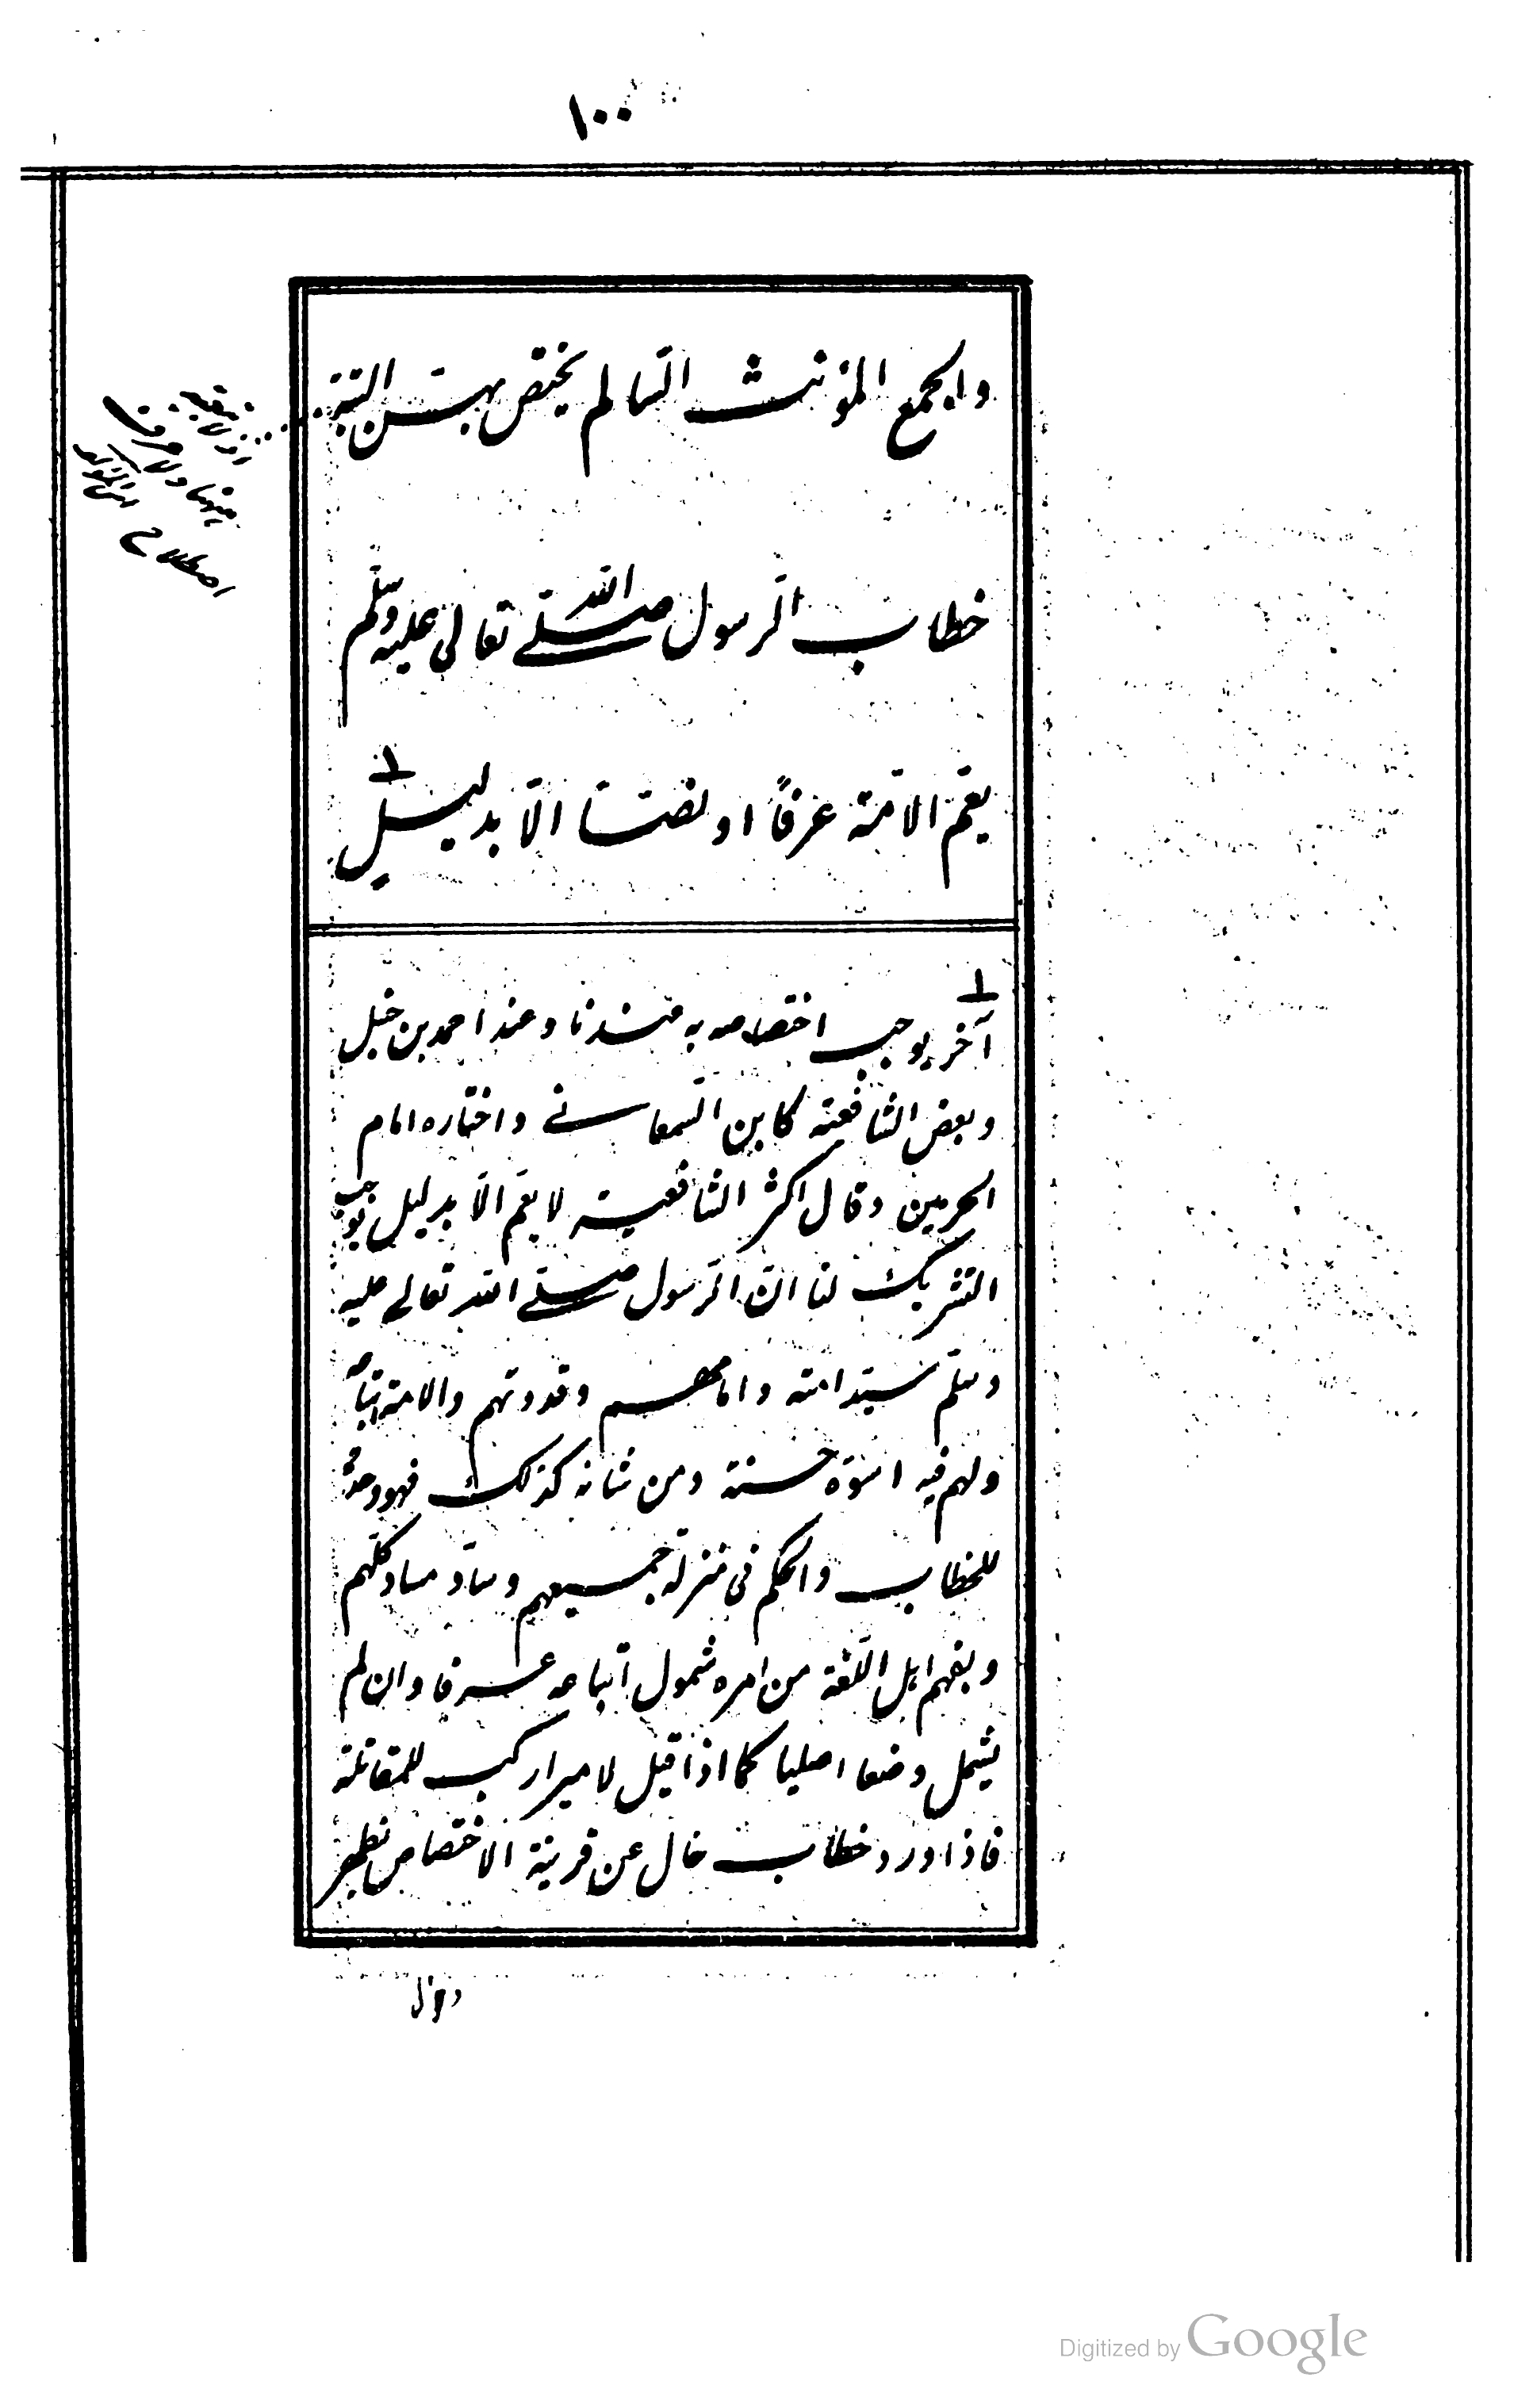 ١٠٠
والجمع المؤنث السالم يختص بهن البتة
خطاب الرسول صلى الله تعالى عليه وسلم
يعم الامة عرفاً او نصا الا بدليل ١
١
آخر يوجب اختصاصه به عندنا وعند احمد بن حنبل
وبعض الشافعية كابن السمعانى واختاره امام
الحرمين وقال اكثر الشافعية لا يعم الا بدليل يوجب
التشريك لنا ان الرسول صلى الله تعالى عليه
وسلم سيد امته وامامهم وقدوتهم والامة اتباعه
ولهم فيه اسوة حسنة ومن شانه كذلك فهو وحده
للخطاب والحكم فى منزلة جميعهم وساد مساد كلهم
ويفهم اهل اللغة من امره شمول اتباعه عرفا وان لم
يشمل وضعا اصليا كما اذا قيل لامير اركب للمقاتلة
فاذا ورد خطاب خال عن قرينة الاختصاص نظهر
Digitized by Google